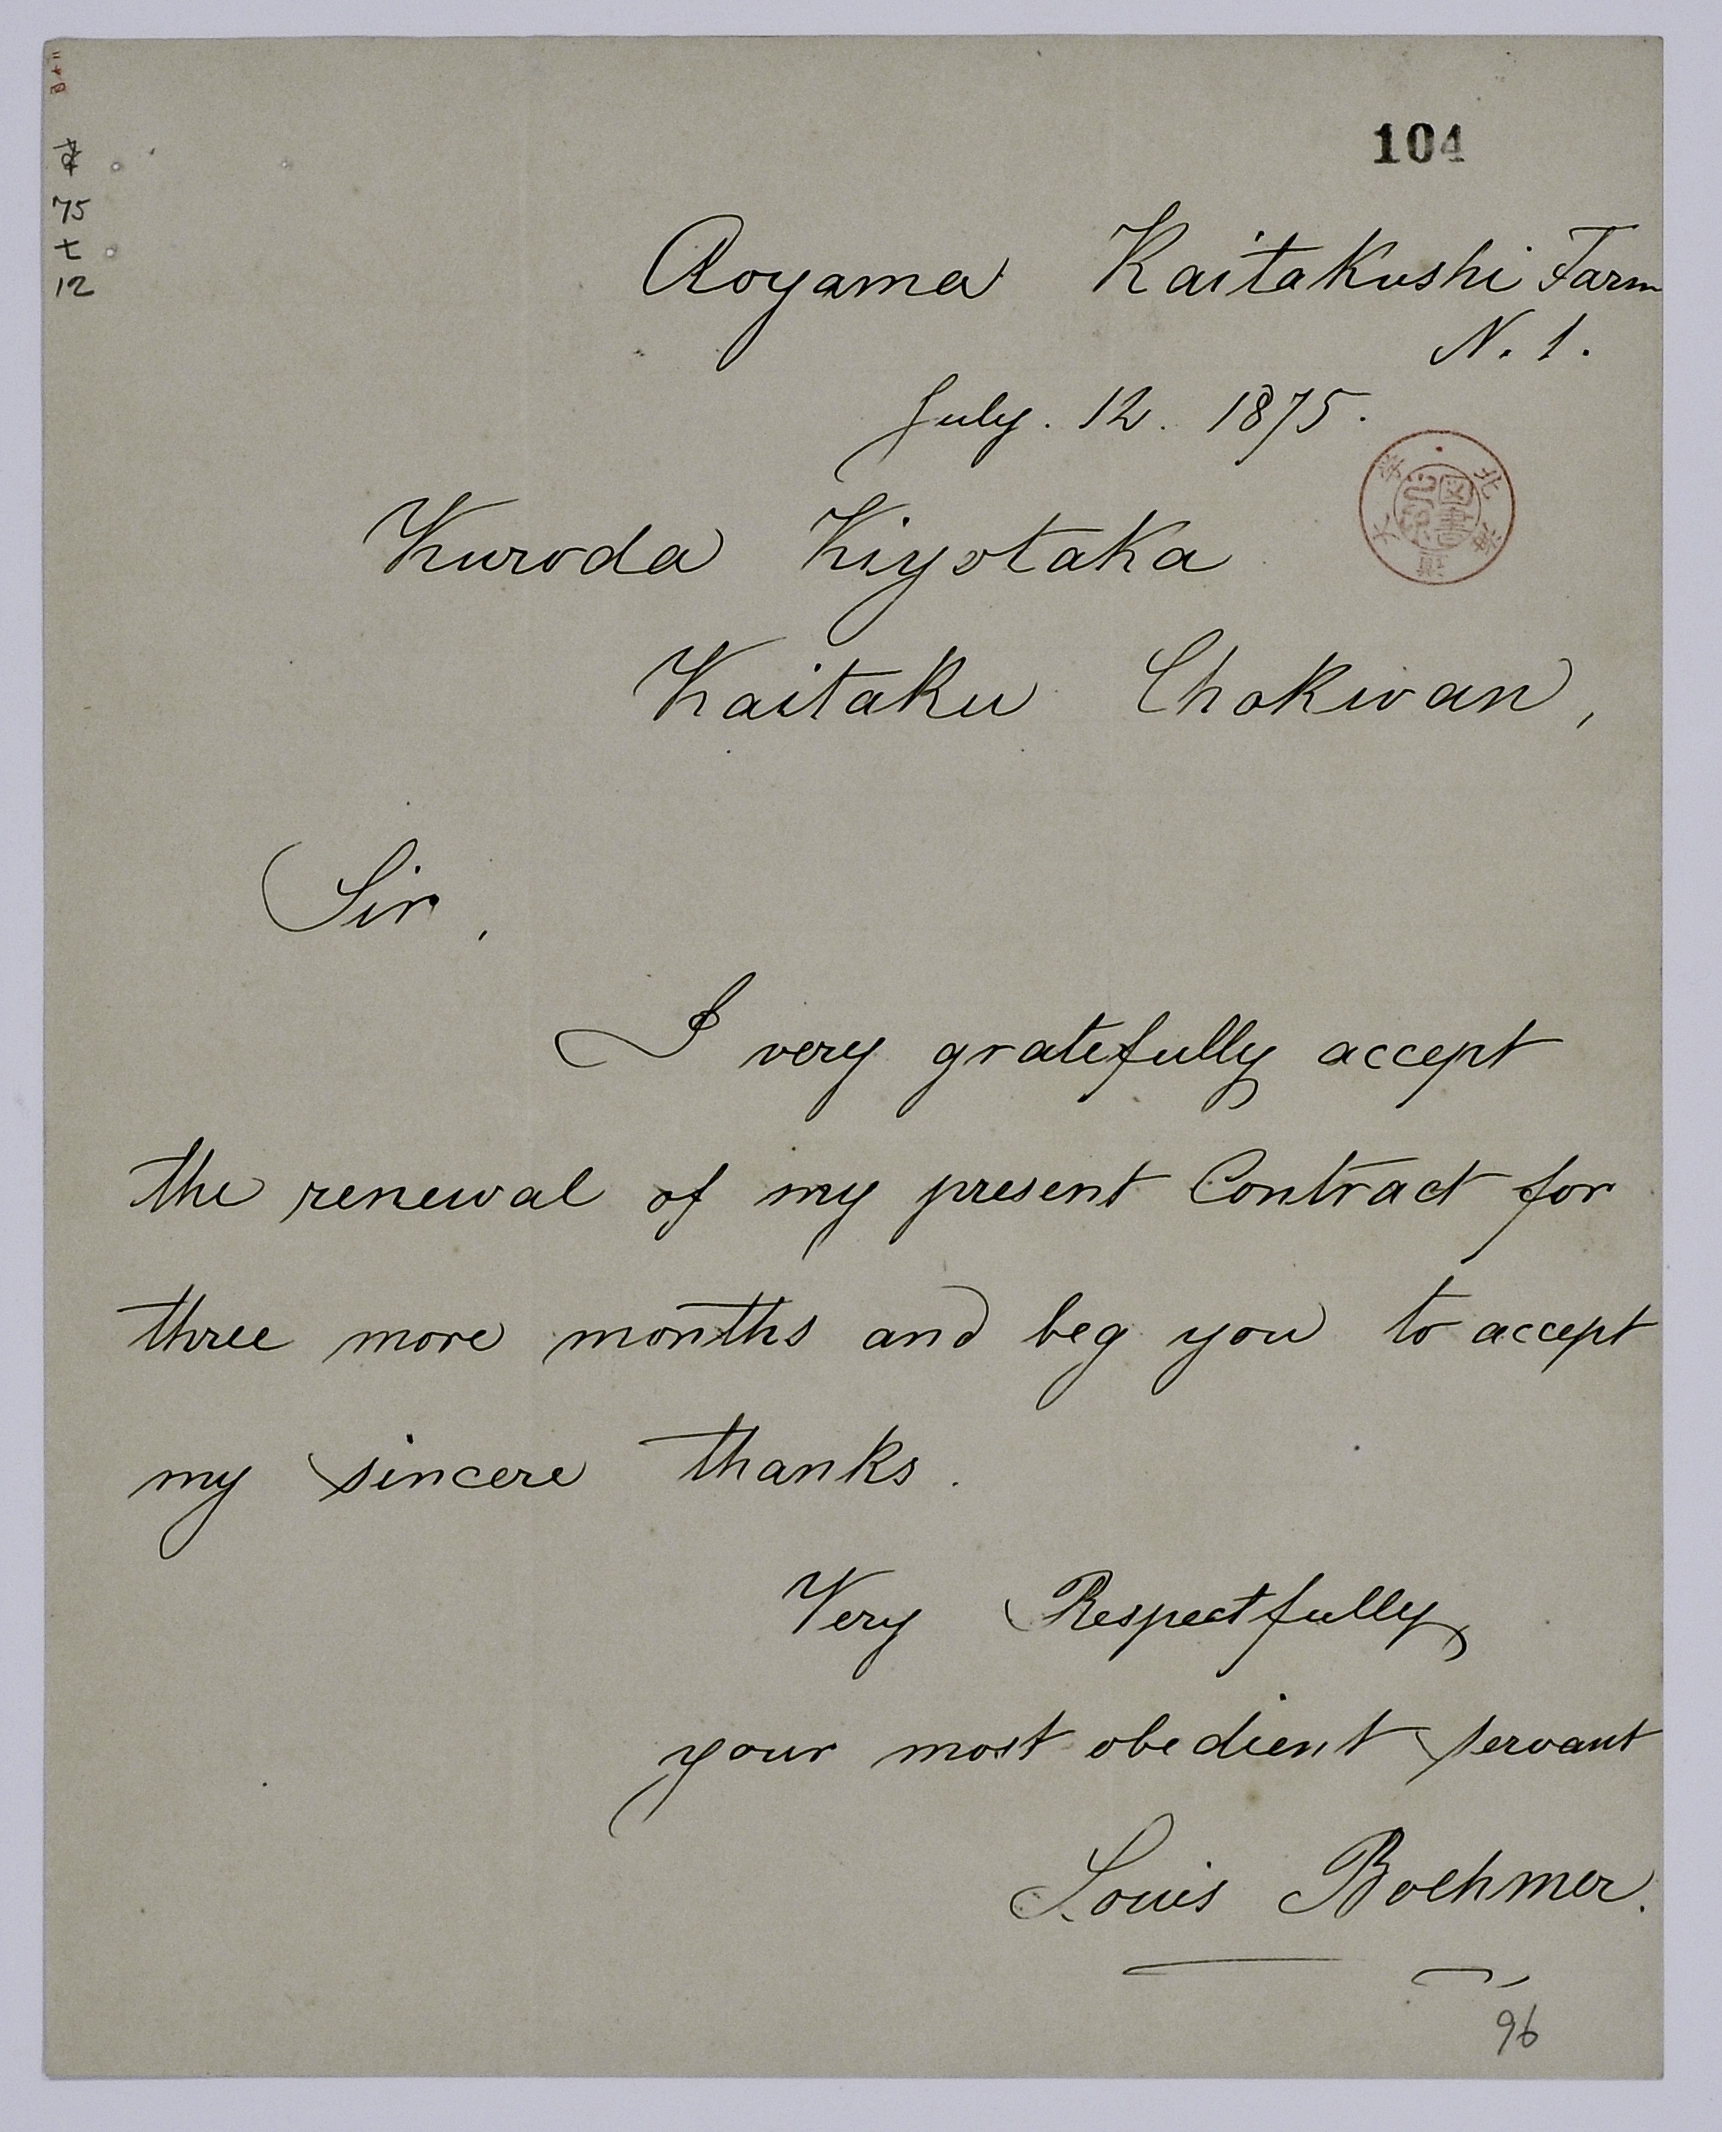 104
75
12
Aoyama Kaitakushi Farm
N. 1.
July. 12. 1875.
Kuroda Kiyotaka
Kaitaku Chokwan,
Sir,
I very gratefully accept
the renewal of my present Contract for
three more months and beg you to accept
my sincere thanks.
Very Respectfully
your most obedient servant
Louis Boehmer.
96